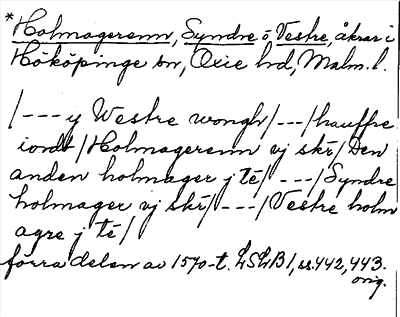 *Holmagerenn, Syndre o Vestre, åkrar i
Hököpinge sn, Oxie hd, Malm. l.
/--- y Westre wongh/---/hauffre
iordt/Holmagerenn vj skr/Den
anden holmager j té/ ---/Syndre
holmager vj skr/---/Vestre holm
agre j té/
förra delen av 1570-t. LSLB 1, ss. 442, 443.
orig.